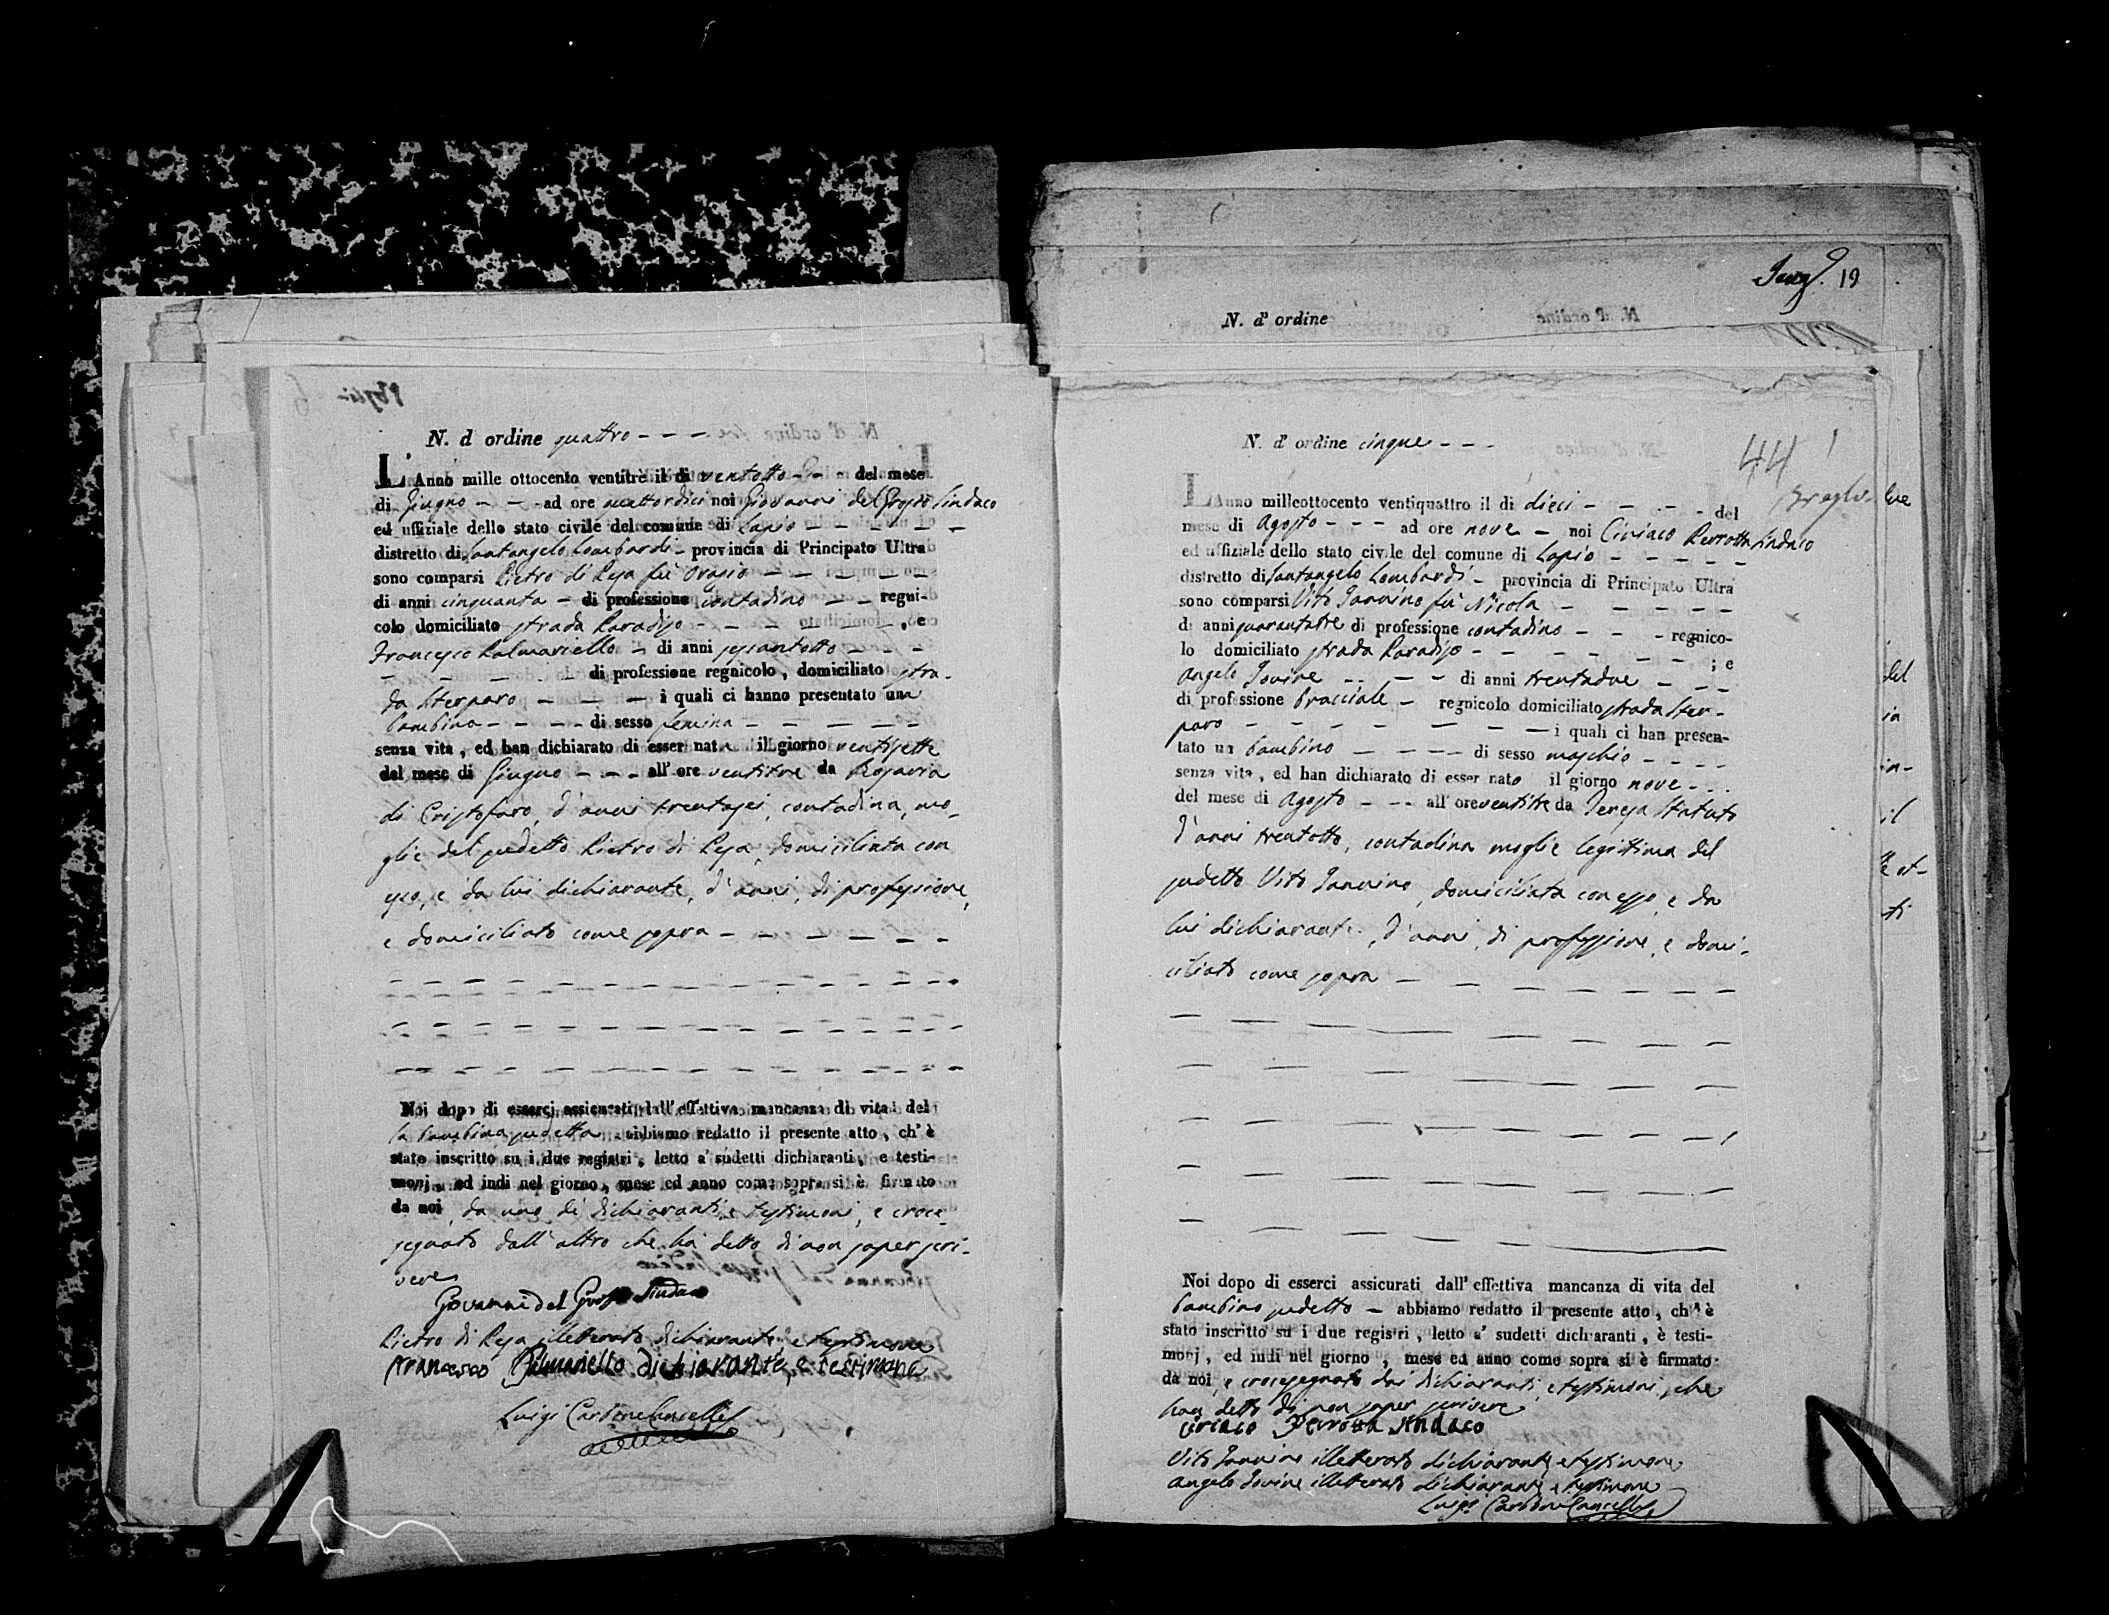 N. d' ordine quattro - - -
L'Anno mille ottocento ventitrè il di ventotto - - - del mese
di Giugno - - - ad ore quattordici noi Giovanni del Grosso Sindaco
ed uffiziale dello stato civile del comune di Lapio - - - - -
distretto di Santangelo Lombardi - provincia di Principato Ultra
sono comparsi Pietro di Pesa fù Orazio - - - - -
di anni cinquanta - di professione contadino - - regni-
colo domiciliato strada Paradiso - - - - - , e
Francesco Palmariello - di anni sessantotto - - -
- - - - - di professione regnicolo, domiciliato stra-
da Sterparo - - - i quali ci hanno presentato una
bambina - - - - di sesso femina - - - - -
senza vita, ed han dichiarato di esser nata il giorno ventisette
del mese di Giugno - - - all' ore ventitre da Rosaria
di Cristofaro, d'anni trentasei, contadina, mo-
glie del sudetto Pietro di Pesa, domiciliata con
esso, e da lui dichiarante, d'anni, di professione,
e domiciliato come sopra - - - - - -
Noi dopo di esserci assicurati dall' effettiva mancanza di vita del
la bambina sudetta abbiamo redatto il presente atto, ch' è
stato inscritto su i due registri, letto a' sudetti dichiaranti, e testi-
monj, ed indi nel giorno, mese ed anno come sopra si è firmato
da noi, da uno de' dichiaranti e testimoni, e croce-
segnato dall'altro che ha detto di non saper scri-
vere
Giovanni del Grosso Sindaco
Pietro di Pesa illetterato dichiarante e testimone
Francesco Palmariello dichiarante, e testimone
Luigi Carbone Cancelle
19
N. d' ordine
N. d' ordine cinque - - -
44
L'Anno milleottocento ventiquattro il di dieci - - - - del
mese di Agosto - - - ad ore nove - noi Ciriaco Perrotta Sindaco
ed uffiziale dello stato civile del comune di Lapio - - - - -
distretto di Santangelo Lombardi - provincia di Principato Ultra
sono comparsi Vito Iannino fù Nicola - - - - -
di anni quarantatre di professione contadino - - - regnico-
lo domiciliato strada Paradiso - - - - - - ; e
Angelo Iovine - - - - di anni trentadue - - -
di professione Bracciale - regnicolo domiciliato strada Ster-
paro - - - - - - - i quali ci han presen-
tato un bambino - - - - di sesso maschio - - - -
senza vita, ed han dichiarato di esser nato il giorno nove - - -
del mese di Agosto - - - all' ore ventitre da Teresa Statuto
d'anni trentotto, contadina moglie legittima del
sudetto Vito Iannino, domiciliata con esso, e da
lui dichiarante, d'anni, di professione, e domi-
ciliato come sopra - - - - - - -
Noi dopo di esserci assicurati dall' effettiva mancanza di vita del
bambino sudetto - abbiamo redatto il presente atto, ch' è
stato inscritto su i due registri, letto a' sudetti dichiaranti, è testi-
monj, ed indi nel giorno, mese ed anno come sopra si è firmato
da noi, e crocesegnato dai dichiaranti, e testimoni, che
han detto di non saper scrivere
Ciriaco Perrotta Sindaco
Vito Iannino illetterato dichiarante, e testimone
Angelo Iovine illetterato dichiarante, e testimone
Luigi Carbone Cancelle